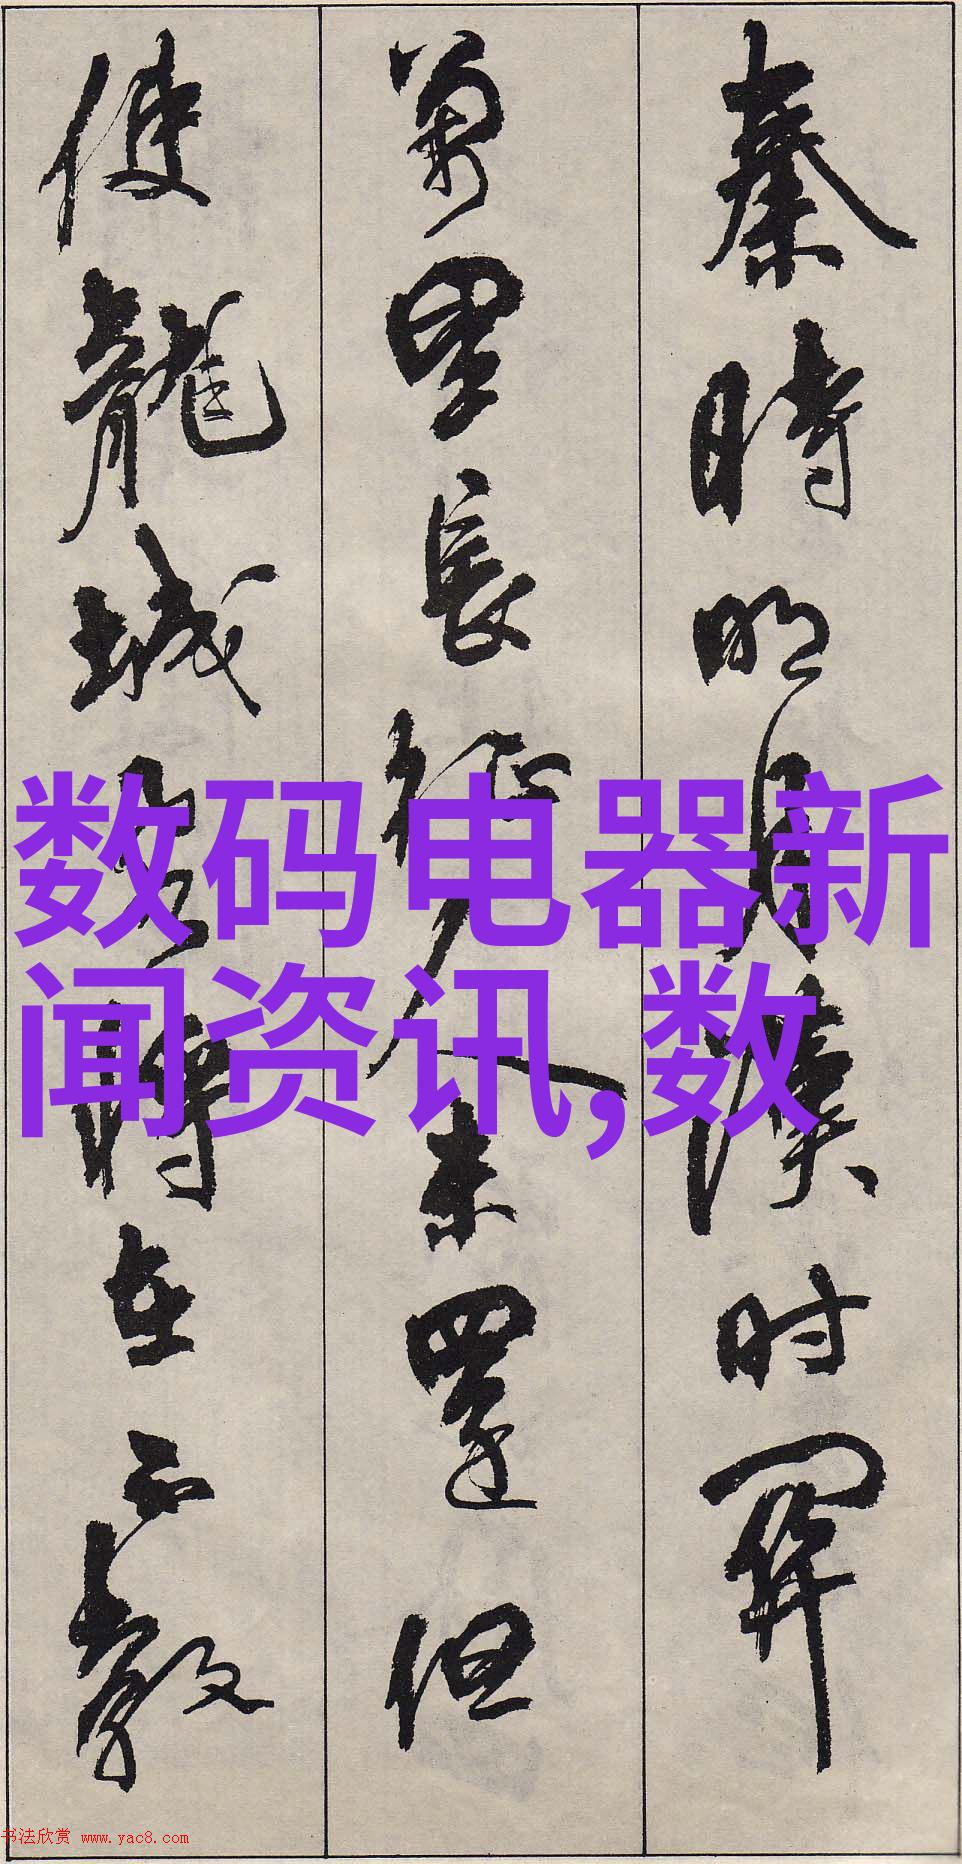 秦時明月漢时關
萬里長征人未還但
使龍城飛將在不教
数码电器新
闻资讯,数
书法欣赏 www.yac8.com